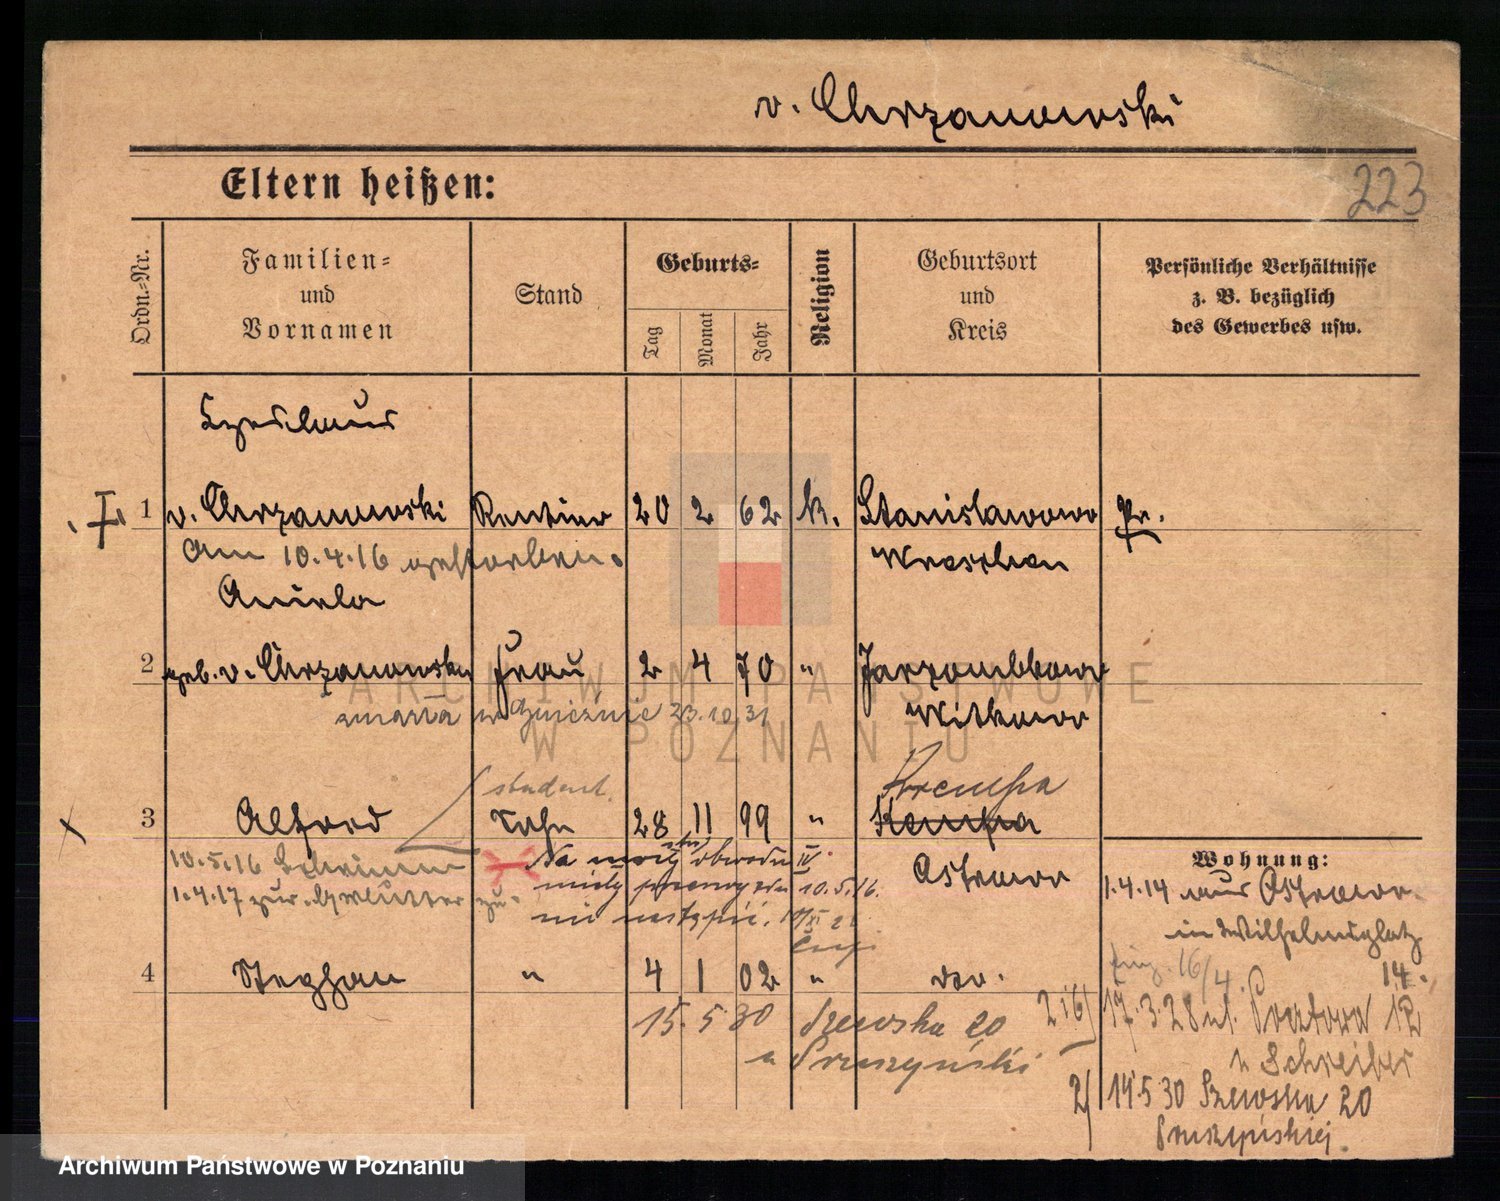 v. Chrzanowski
Eltern heißen:
223
Ordn.-Nr.
Familien-
und
Vornamen
Stand
Geburts-
Tag
Monat
Jahr
Religion
Geburtsort
und
Kreis
Persönliche Verhältnisse
z. B. bezüglich
des Gewerbes usw.
1 v. Chrzanowski Rentier 20 2 62 k. Stanislawowo Pr.
am 10.4.16 gestorben. Wreschen
Aniela
2 geb. v. Chrzanowska Frau 2 4 70 " Jarzombkowo
zmarła w Gnieźnie 23.10 31 Witkowo
student. Krempa
3 Alfred Sohn 28 11 99 " Kempa
Ostrowo
10.5.16 Schrimm
1.4.17 zur. Mutter zu.
Na mocy obwodu IV
10.5.16.
nie nastąpić.
Wohnung:
1.4.14 aus Ostrowo
in Wilhelmsplatz
14.
16/4.
4 Stephan " 4 1 02 " do.
15.5 30 Szewska 20
u Pruszyński
2 i 6) 17.3.28 ul. Pocztowa 12
u Schreiber
2) 14 5 30 Szewska 20
Pruszyńskiej.
ARCHIWUM PAŃSTWOWE
W POZNANIU
Archiwum Państwowe w Poznaniu